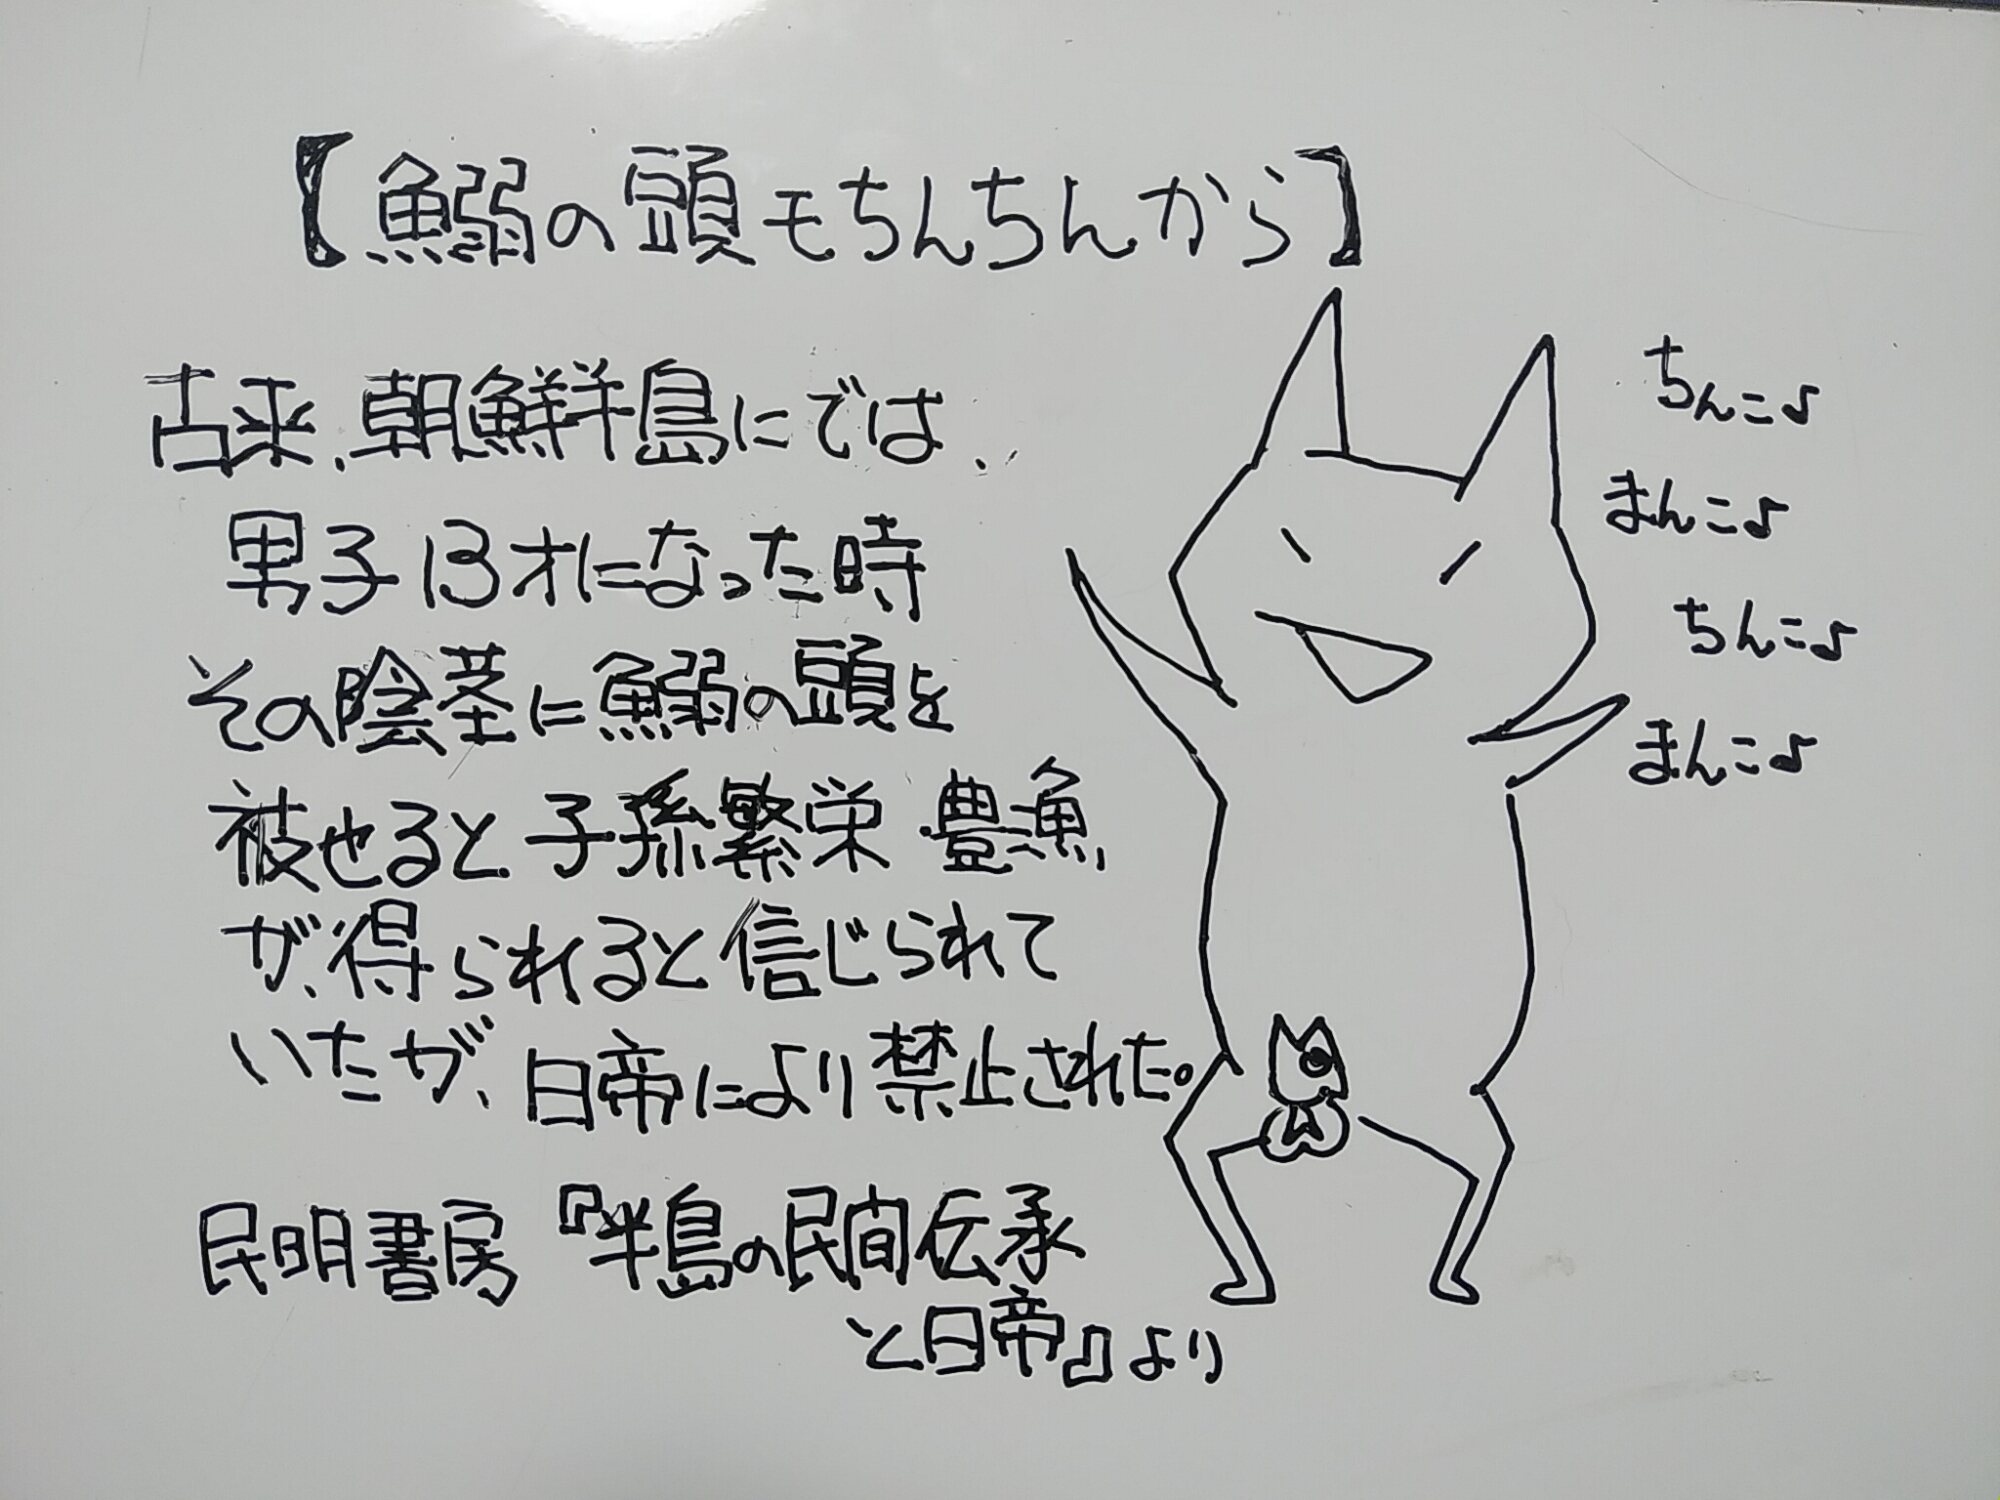 【鰯の頭モちんちんから】
古来、朝鮮半島にでは、
男子13才になった時
その陰茎に鰯の頭を
被せると子孫繁栄 豊漁
が、得られると信じられて
いたが、日帝により禁止された。
民明書房『半島の民間伝承
と日帝』より
ちんこ♪
まんこ♪
ちんこ♪
まんこ♪